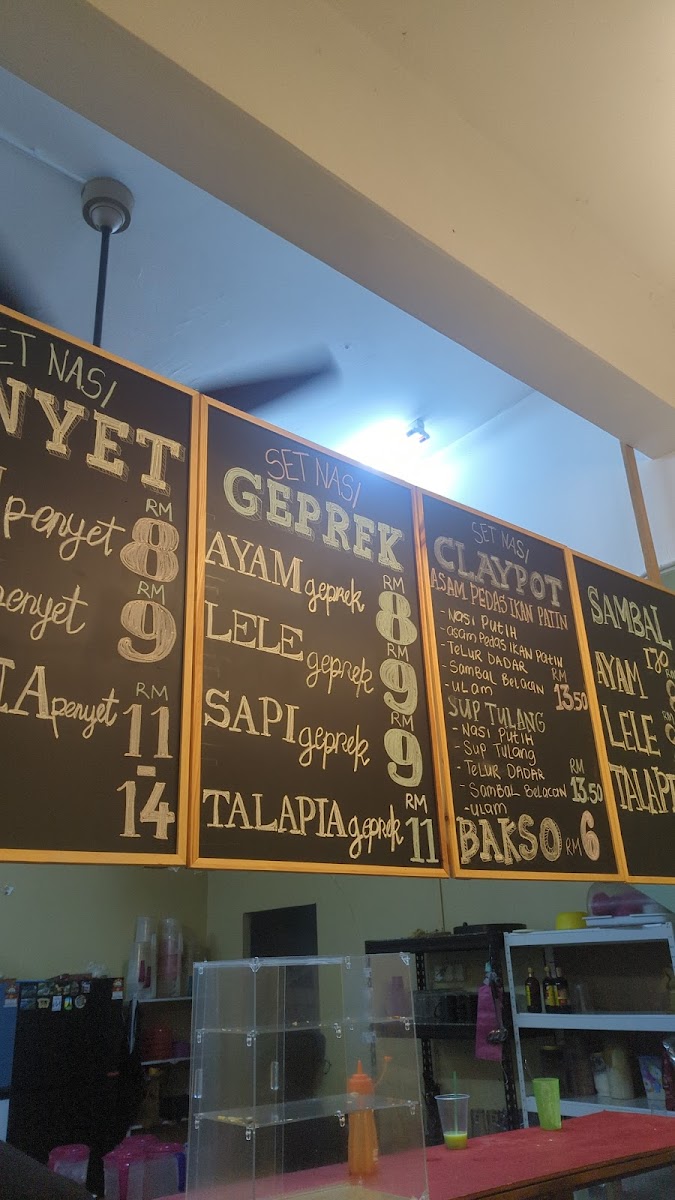 SET NASI
NYET
penyet RM 8
penyet RM 9
IA penyet RM 11 - 14
SET NASI
GEPREK
AYAM geprek RM 8
LELE geprek RM 9
SAPI geprek RM 9
TALAPIA geprek RM 11
SET NASI
CLAYPOT
ASAM PEDAS IKAN PATIN
- NASI PUTIH
- asam Pedas IKAN PATIN
- TELUR DADAR
- SAMBAL BELACAN
- ULAM RM 13.50
SUP TULANG
- NASI PUTIH
- SUP Tulang
- TELUR DADAR
- SAMBAL BELACAN
- ULAM RM 13.50
BAKSO RM 6
SAMBAL
AYAM
LELE
TALAPI